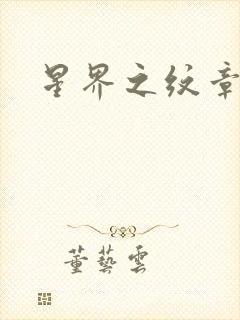 星界之纹章
董艺云